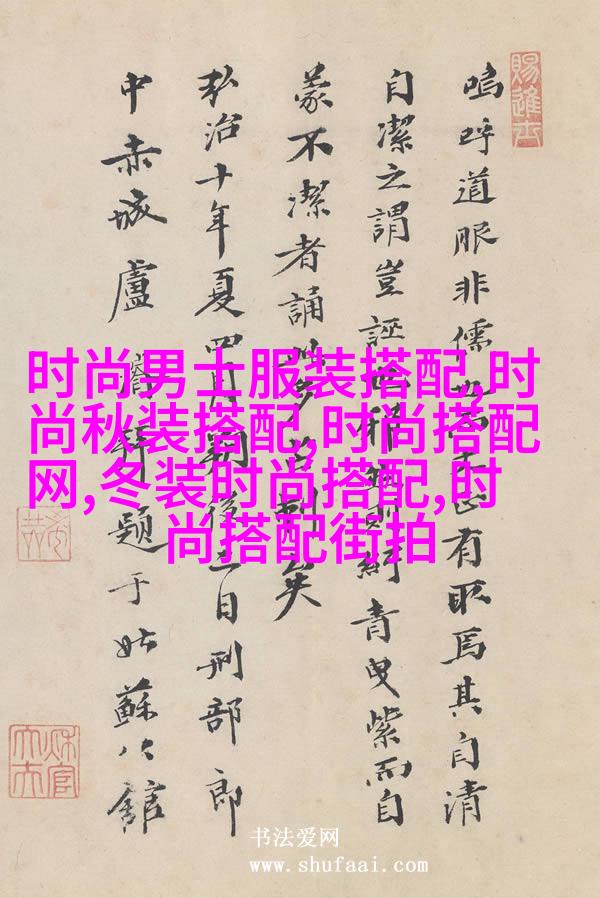 賜進士
嗚呼道服非儒正有取焉其自清
自潔之謂豈誣則紆青曳紫而自
蒙不潔者誦矣
弘治十年夏四月後日刑部郎
中赤城盧拜題于姑蘇公館
时尚男士服装搭配,时
尚秋装搭配,时尚搭配
网,冬装时尚搭配,时
尚搭配街拍
书法爱网
www.shufaai.com